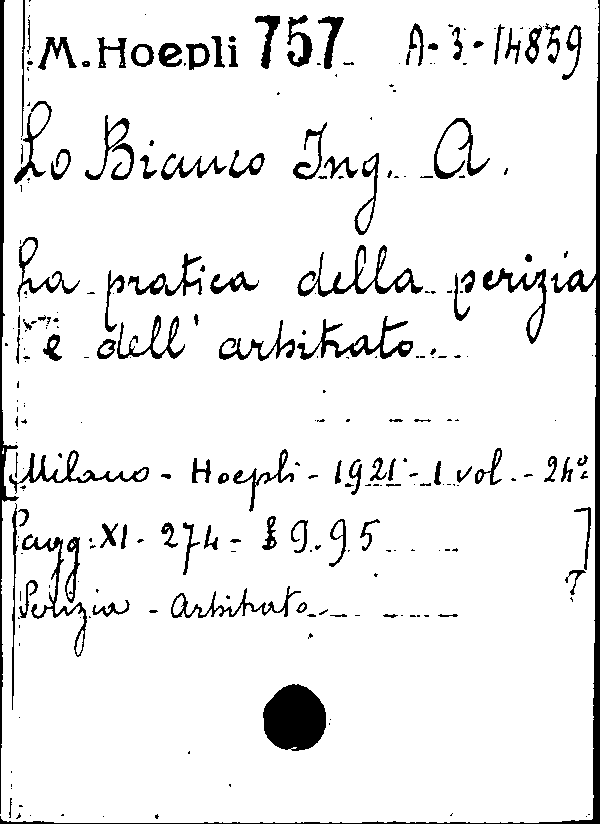 M. Hoepli 757 A-3-14859
Lo Bianco Ing. A.
La pratica della perizia
e dell' arbitrato.
[Milano - Hoepli - 1921 - 1 vol. - 24º
Pagg. XI - 274 - £ 9.95 ]
Perizia - Arbitrato ?